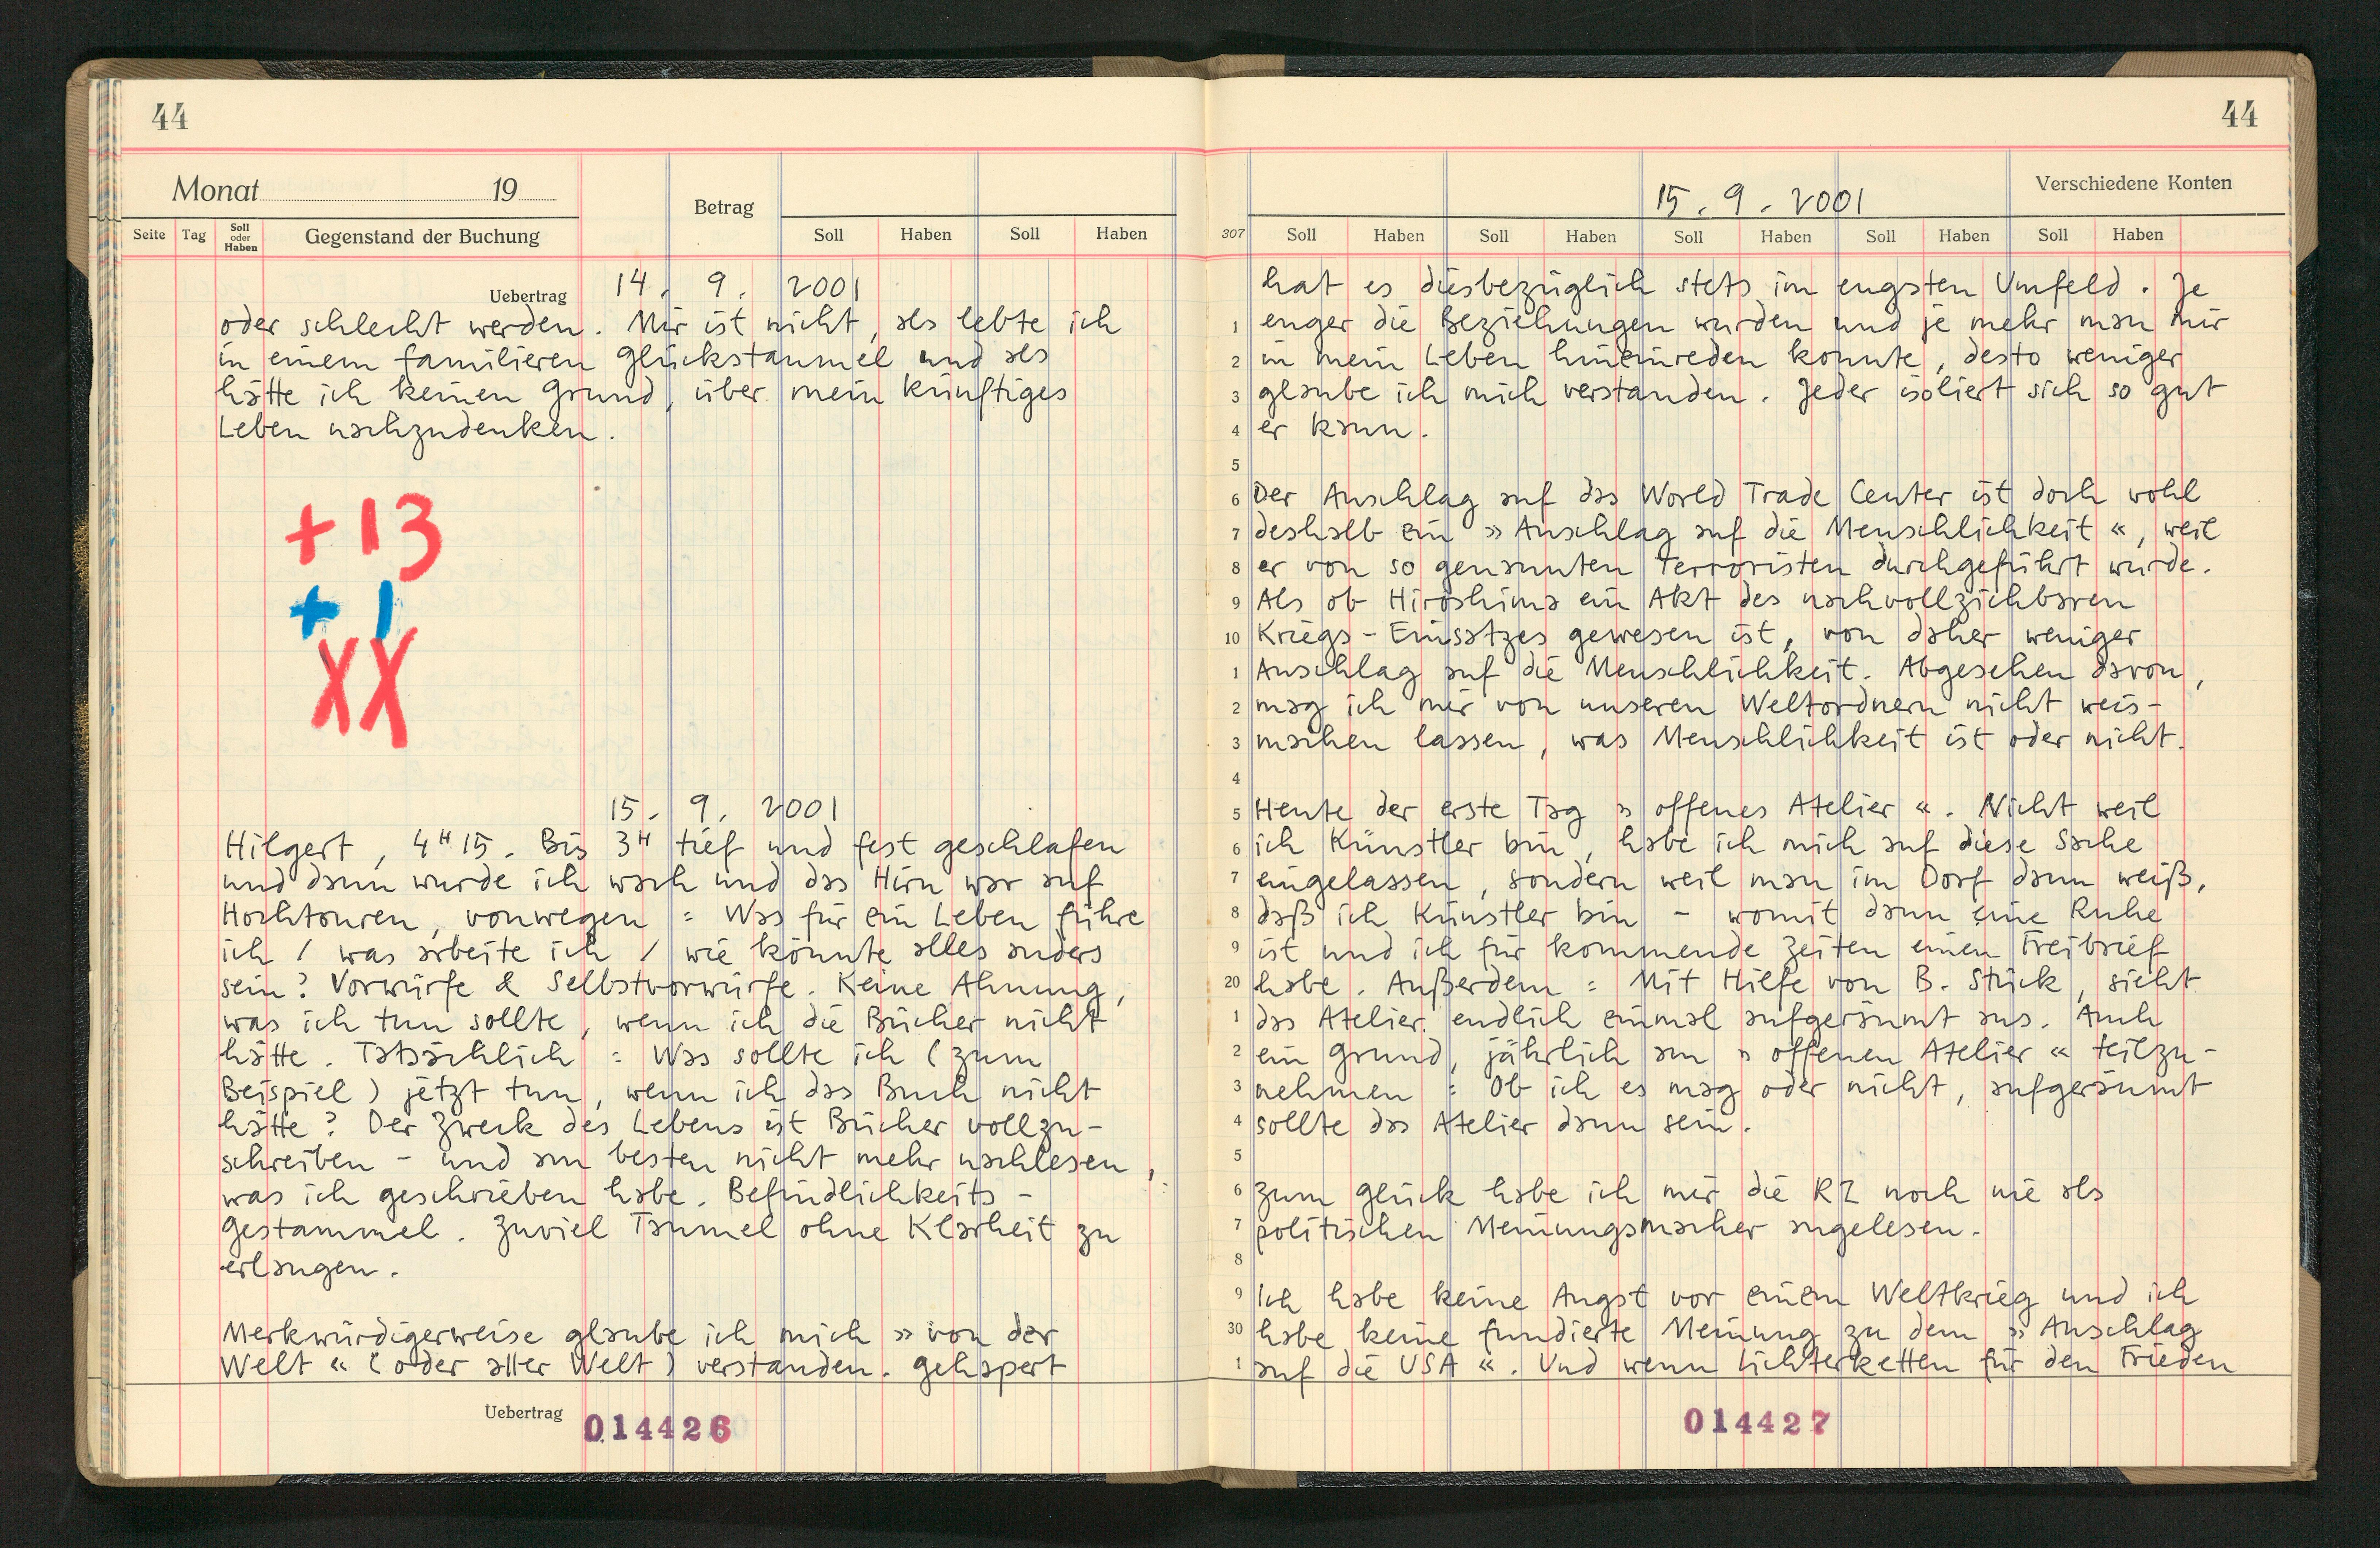 44
Monat 19
Betrag
Seite Tag Soll oder Haben Gegenstand der Buchung Soll Haben Soll Haben
Uebertrag 14. 9. 2001
oder schlecht werden. Mir ist nicht, als lebte ich
in einem familieren Glückstaumel und als
hätte ich keinen Grund, über mein künftiges
Leben nachzudenken.
+13
+1
XX
15. 9. 2001
Hilgert, 4H15. Bis 3H tief und fest geschlafen
und dann wurde ich wach und das Hirn war auf
Hochtouren, vonwegen : Was für ein Leben führe
ich / was arbeite ich / wie könnte alles anders
sein? Vorwürfe & Selbstvorwürfe. Keine Ahnung,
was ich tun sollte, wenn ich die Bücher nicht
hätte. Tatsächlich : Was sollte ich (zum
Beispiel) jetzt tun, wenn ich das Buch nicht
hätte? Der Zweck des Lebens ist Bücher vollzu-
schreiben - und am besten nicht mehr nachlesen,
was ich geschrieben habe. Befindlichkeits-
gestammel. Zuviel Taumel ohne Klarheit zu
erlangen.
Merkwürdigerweise glaube ich mich »von der
Welt« (oder aller Welt) verstanden. Gehapert
Uebertrag 014426
44
15. 9. 2001 Verschiedene Konten
307 Soll Haben Soll Haben Soll Haben Soll Haben Soll Haben
hat es diesbezüglich stets im engsten Umfeld. Je
1 enger die Beziehungen wurden und je mehr man mir
2 in mein Leben hineinreden konnte, desto weniger
3 glaube ich mich verstanden. Jeder isoliert sich so gut
4 er kann.
5
6 Der Anschlag auf das World Trade Center ist doch wohl
7 deshalb ein »Anschlag auf die Menschlichkeit«, weil
8 er von so genannten Terroristen durchgeführt wurde.
9 Als ob Hiroshima ein Akt des nachvollziehbaren
10 Kriegs-Einsatzes gewesen ist, von daher weniger
1 Anschlag auf die Menschlichkeit. Abgesehen davon,
2 mag ich mir von unseren Weltordnern nicht weis-
3 machen lassen, was Menschlichkeit ist oder nicht.
4
5 Heute der erste Tag »offenes Atelier«. Nicht weil
6 ich Künstler bin, habe ich mich auf diese Sache
7 eingelassen, sondern weil man im Dorf dann weiß,
8 daß ich Künstler bin - womit dann eine Ruhe
9 ist und ich für kommende Zeiten einen Freibrief
20 habe. Außerdem : Mit Hilfe von B. Stück, sieht
1 das Atelier endlich einmal aufgeräumt aus. Auch
2 ein Grund, jährlich am »offenen Atelier« teilzu-
3 nehmen : Ob ich es mag oder nicht, aufgeräumt
4 sollte das Atelier dann sein.
5
6 Zum Glück habe ich mir die RZ noch nie als
7 politischen Meinungsmacher angelesen.
8
9 Ich habe keine Angst vor einem Weltkrieg und ich
30 habe keine fundierte Meinung zu dem »Anschlag
1 auf die USA«. Und wenn Lichterketten für den Frieden
014427